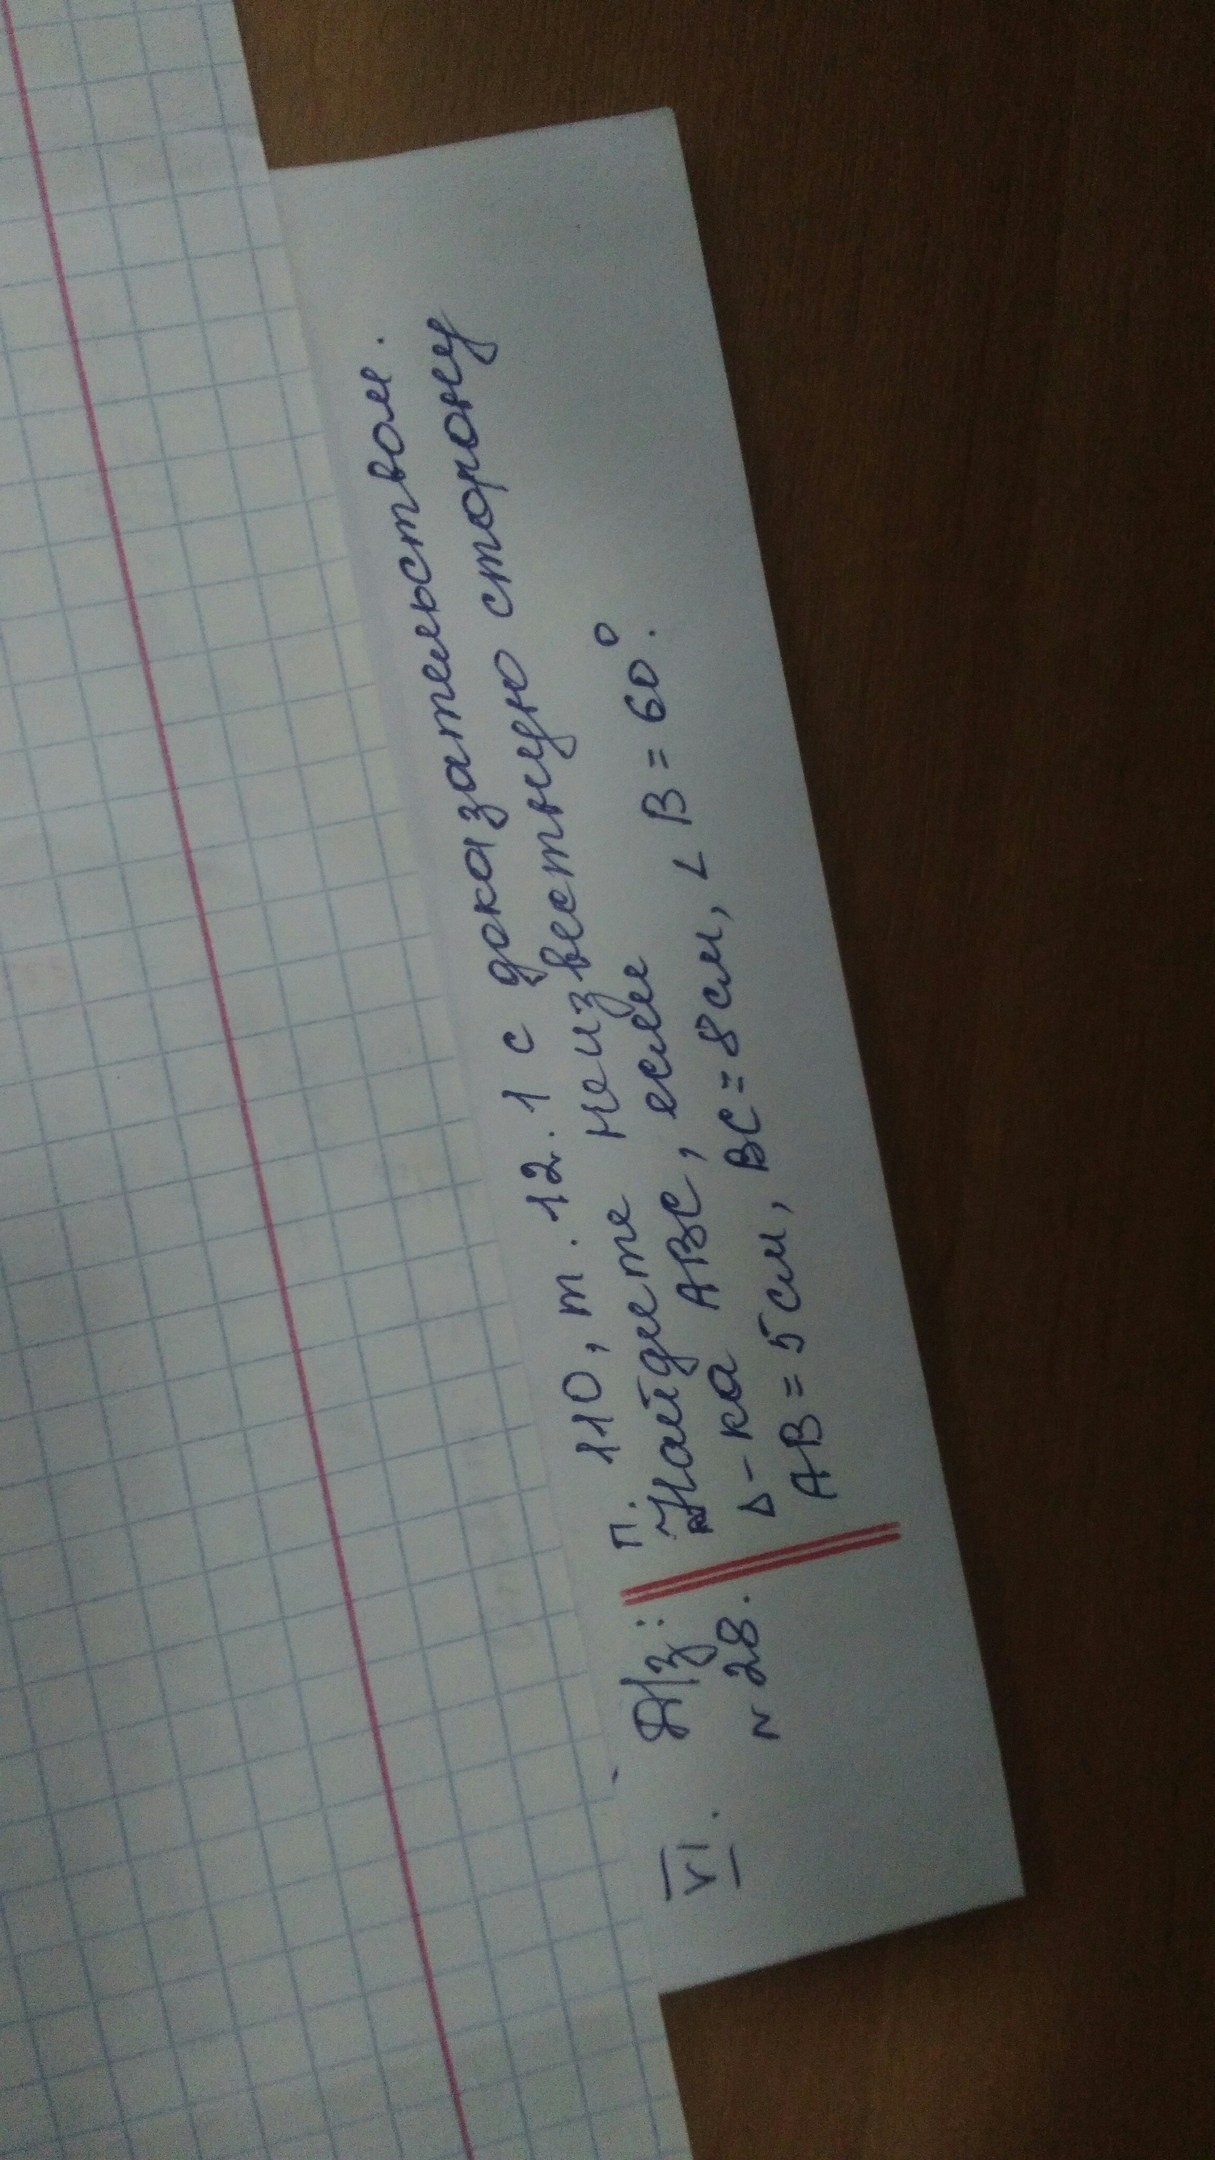 VI. Д/з: п. 110, т. 12.1 с доказательством.
N 28. Найдите неизвестную сторону
Δ-ка ABC, если
AB = 5 см, BC = 8 см, ∠ B = 60°.